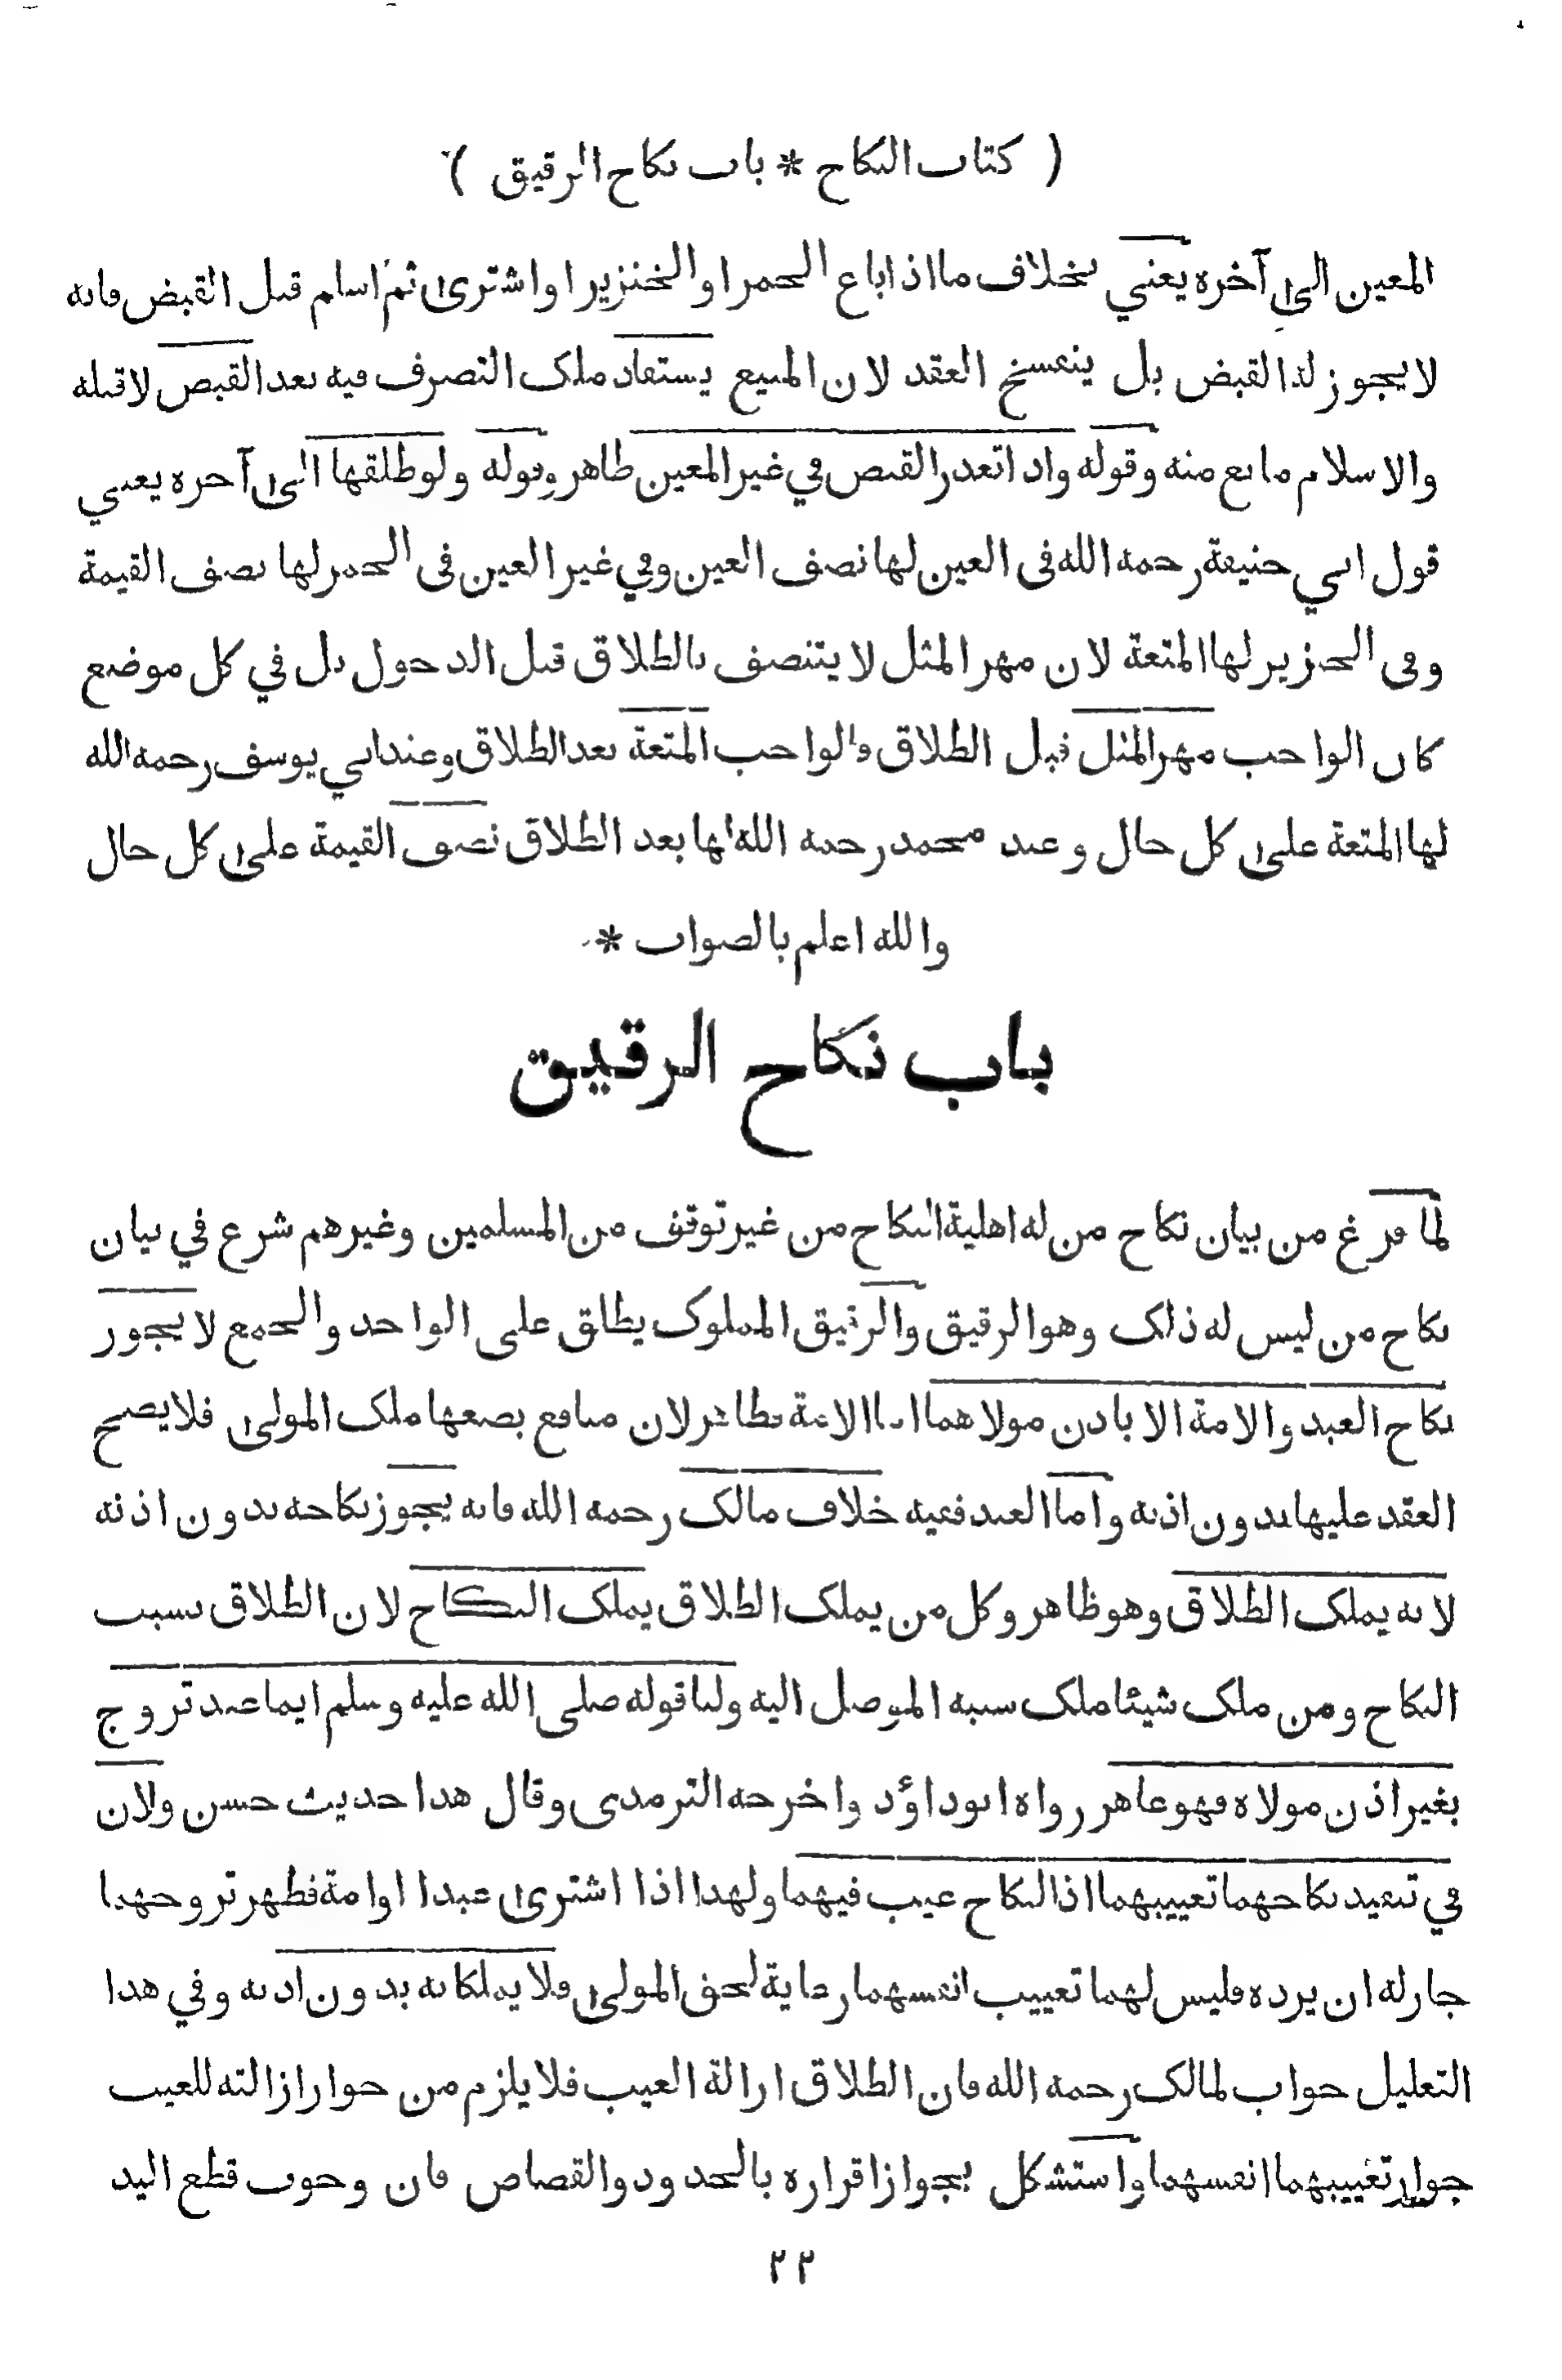 ( كتاب النكاح * باب نكاح الرقيق )
المعين الى آخره يعني بخلاف ما اذا باع الخمر او الخنزير او اشترى ثم اسلم قبل القبض فانه
لا يجوز له القبض بل ينفسخ العقد لان المبيع يستفاد ملك التصرف فيه بعد القبض لا قبله
والاسلام مانع منه وقوله واذا تعذر القبض في غير المعين ظاهر وقوله ولو طلقها الى آخره يعني
قول ابي حنيفة رحمه الله في العين لها نصف العين وفي غير العين في الخمر لها نصف القيمة
وفي الخنزير لها المتعة لان مهر المثل لا يتنصف بالطلاق قبل الدخول بل في كل موضع
كان الواجب مهر المثل قبل الطلاق فالواجب المتعة بعد الطلاق وعند ابي يوسف رحمه الله
لها المتعة على كل حال وعند محمد رحمه الله لها بعد الطلاق نصف القيمة على كل حال
والله اعلم بالصواب *
باب نكاح الرقيق
لما فرغ من بيان نكاح من له اهلية النكاح من غير توقف من المسلمين وغيرهم شرع في بيان
نكاح من ليس له ذلك وهو الرقيق والرقيق المملوك يطلق على الواحد والجمع لا يجوز
نكاح العبد والامة الا باذن مولاهما اما الامة فظاهر لان منافع بضعها ملك المولى فلا يصح
العقد عليها بدون اذنه واما العبد ففيه خلاف مالك رحمه الله فانه يجوز نكاحه بدون اذنه
لانه يملك الطلاق وهو ظاهر وكل من يملك الطلاق يملك النكاح لان الطلاق بسبب
النكاح ومن ملك شيئا ملك سببه الموصل اليه ولنا قوله صلى الله عليه وسلم ايما عبد تزوج
بغير اذن مولاه فهو عاهر رواه ابو داؤد واخرجه الترمذى وقال هذا حديث حسن ولان
في تنفيذ نكاحهما تعييبهما اذ النكاح عيب فيهما ولهذا اذا اشترى عبدا او امة فظهر تزوجهما
جاز له ان يرده فليس لهما تعييب انفسهما رعاية لحق المولى فلا يملكانه بدون اذنه وفي هذا
التعليل جواب لمالك رحمه الله فان الطلاق ازالة العيب فلا يلزم من جواز ازالته للعيب
جواز تعييبهما انفسهما واستشكل بجواز اقراره بالحدود والقصاص فان وجوب قطع اليد
٢٢